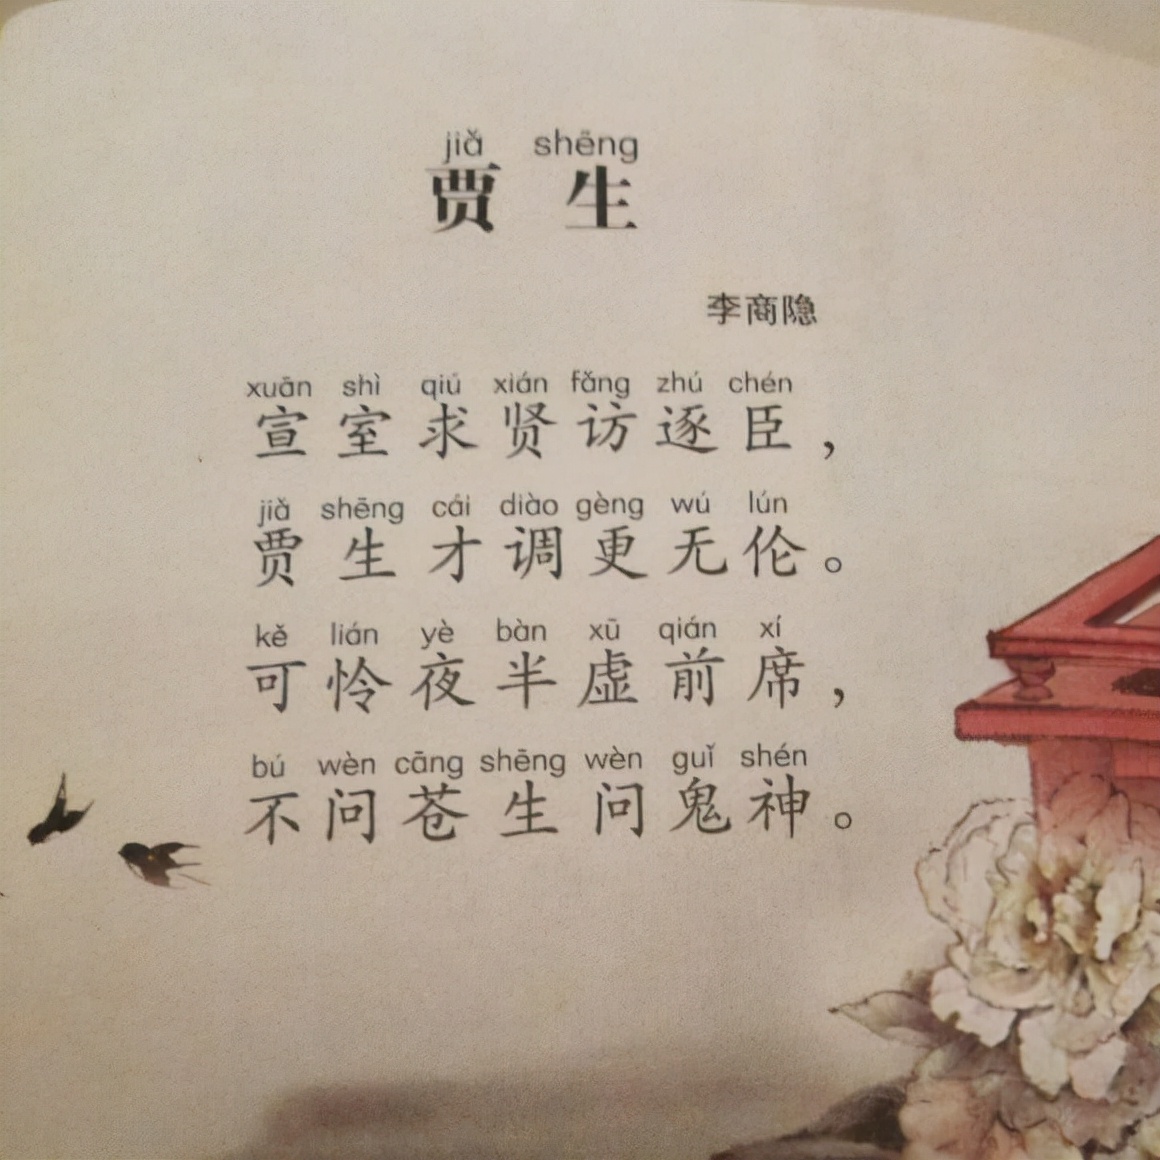 jiǎ shēng
贾生
李商隐
xuān shì qiú xián fǎng zhú chén
宣室求贤访逐臣，
jiǎ shēng cái diào gèng wú lún
贾生才调更无伦。
kě lián yè bàn xū qián xí
可怜夜半虚前席，
bú wèn cāng shēng wèn guǐ shén
不问苍生问鬼神。